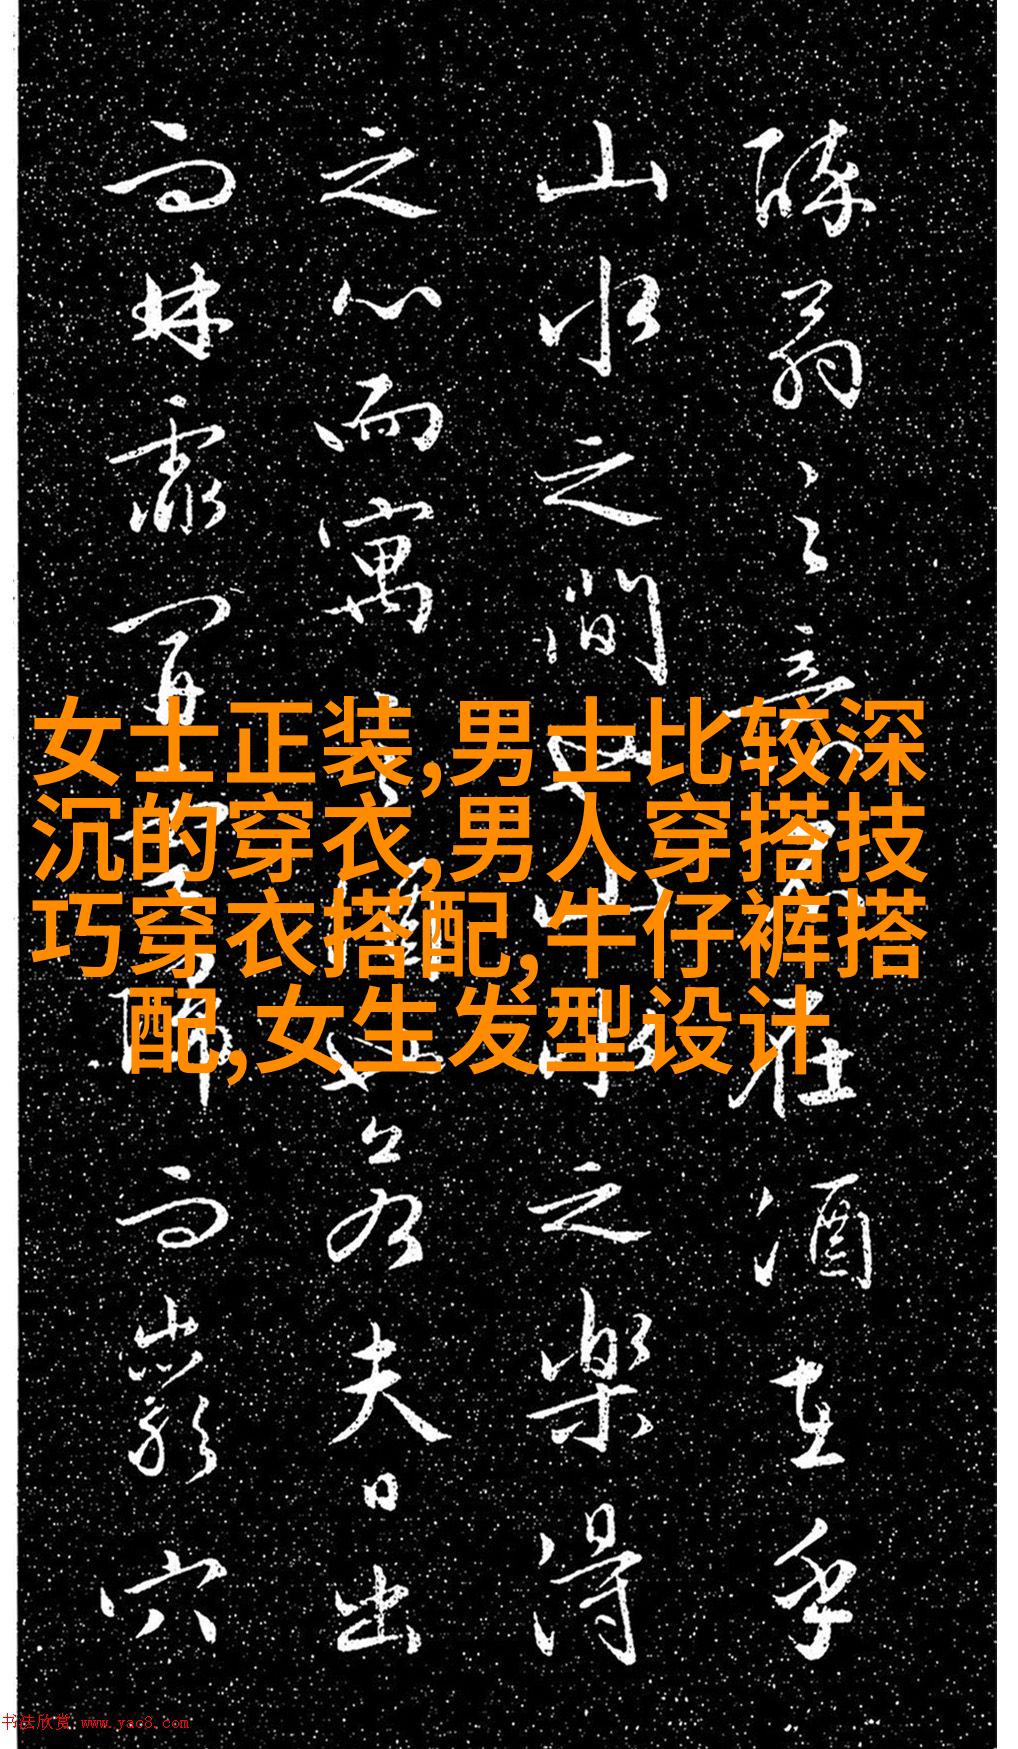 醉翁之意不在酒在乎
山水之間也山水之樂得
之心而寓之酒也若夫日出
而林霏開雲歸而巖穴
女士正装,男士比较深
沉的穿衣,男人穿搭技
巧穿衣搭配,牛仔裤搭
配,女生发型设计
书法欣赏 www.yac8.com